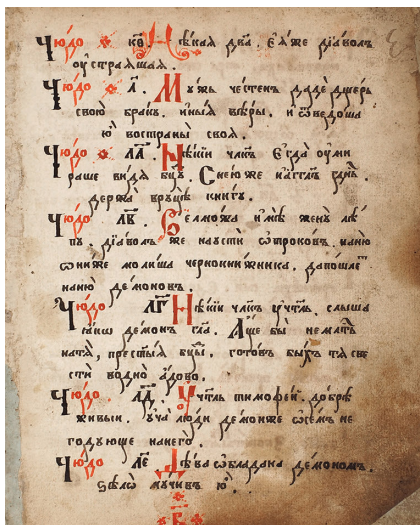 Чюдо . к҃ѳ . Нѣкая дв҃а . Еяже дїаволъ
оустрашая .
Чюдо . л҃ . Мужъ честенъ даде дщерь
свою бракꙋ . иныя вѣры . и ѿведоша
ю҆ воспраны своя .
Чюдо . л҃а . Нѣкїи чл҃къ Егда оуми
раше видя бц҃ꙋ . Снеюже и аггл҃ъ
держа врꙋцѣ книгꙋ .
Чюдо . л҃в . Велможа имѣ женꙋ лѣ
пꙋ . дїаволъ же наусти ѿроковъ . наню
ѡниже молиша чернокнижника , дапошлет
наню демоновъ .
Чюдо л҃г Нѣкїи чл҃къ слыша
демон гл҃а . Аще бы не мать
натя , прест҃ыя бц҃ы . готовъ быхъ тя све
сти водно адово .
Чюдо . л҃д . Учтл҃ь тимофеи . добрѣ
живыи . уча люди демониже ѡсемъ не
годующе нанего .
Чюдо л҃е Дѣва ѡбладана демономъ .
ѕѣлѡ мучивъ ю҆ .